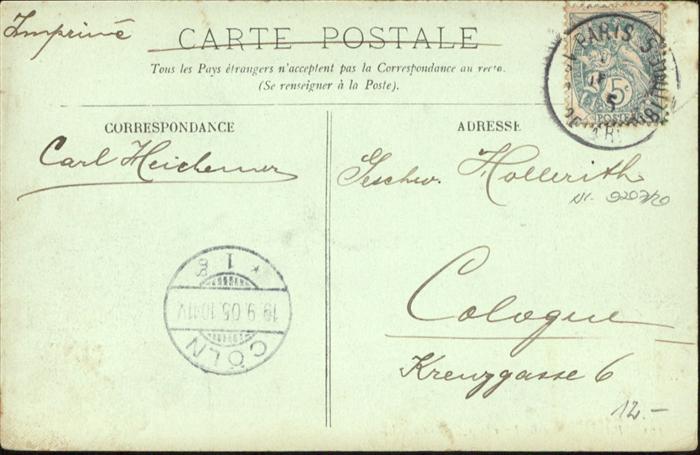 Imprimé
CARTE POSTALE
Tous les Pays étrangers n'acceptent pas la Correspondance au recto.
(Se renseigner à la Poste).
CORRESPONDANCE
ADRESSE
PARIS
5c
POSTES
Carl
Geschw. Hollerith
Cologne
Kreuzgasse 6
12.-
CÖLN
19.9.05.
* 1 g